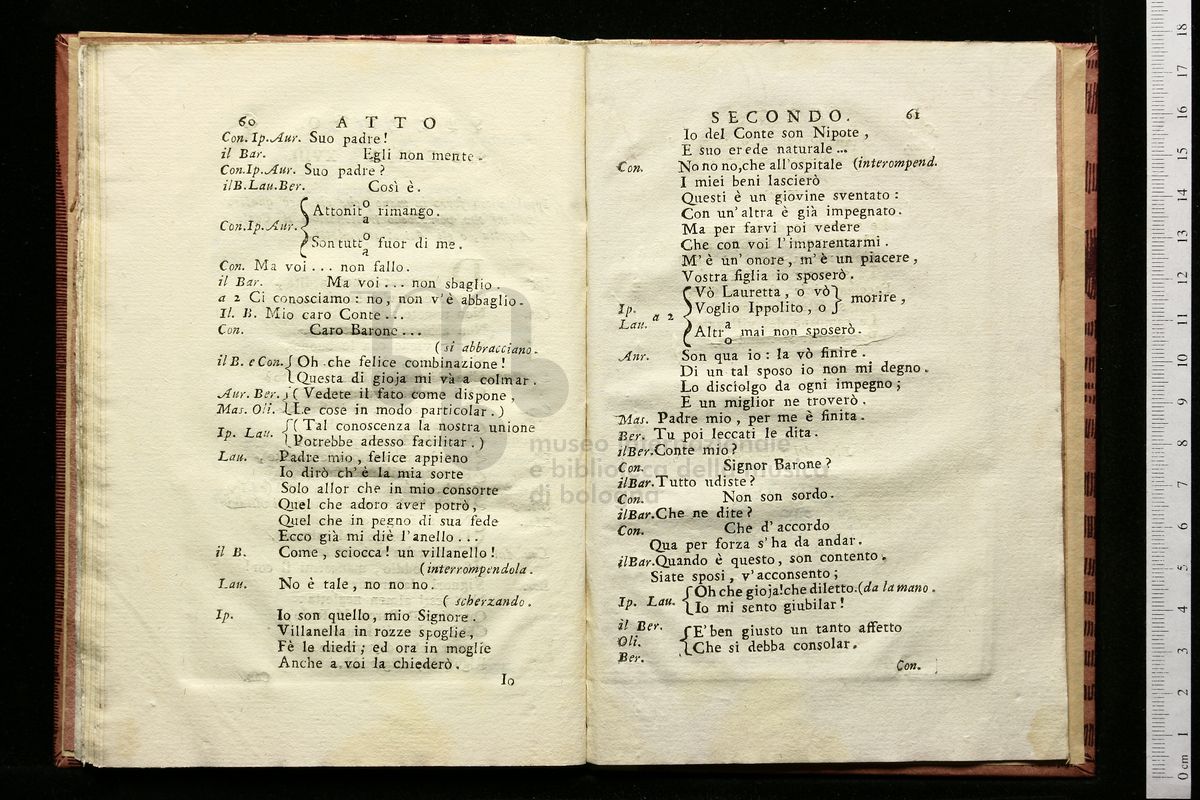 60 ATTO
Con. Ip. Aur. Suo padre!
il Bar. Egli non mente.
Con.Ip.Aur. Suo padre?
il B.Lau.Ber. Così è.
Attonit o/a rimango.
Con.Ip.Aur.
Son tutt o/a fuor di me.
Con. Ma voi... non fallo.
il Bar. Ma voi... non sbaglio.
a 2 Ci conosciamo: no, non v'è abbaglio.
Il. B. Mio caro Conte...
Con. Caro Barone...
(si abbracciano.
il B. e Con. { Oh che felice combinazione!
Questa di gioja mi và a colmar.
Aur. Ber. { ( Vedete il fato come dispone,
Mas. Oli. Le cose in modo particolar.)
Ip. Lau. { ( Tal conoscenza la nostra unione
Potrebbe adesso facilitar.)
Lau. Padre mio, felice appieno
Io dirò ch'è la mia sorte
Solo allor che in mio consorte
Quel che adoro aver potrò,
Quel che in pegno di sua fede
Ecco già mi diè l'anello...
il B. Come, sciocca! un villanello!
(interrompendola.
Lau. No è tale, no no no.
( scherzando.
Ip. Io son quello, mio Signore.
Villanella in rozze spoglie,
Fè le diedi; ed ora in moglie
Anche a voi la chiederò.
Io
SECONDO. 61
Io del Conte son Nipote,
E suo erede naturale...
Con. No no no, che all'ospitale (interompend.
I miei beni lascierò
Questi è un giovine sventato:
Con un'altra è già impegnato.
Ma per farvi poi vedere
Che con voi l'imparentarmi.
M'è un'onore, m'è un piacere,
Vostra figlia io sposerò.
Vò Lauretta, o vò } morire,
Ip. Lau. a 2 { Voglio Ippolito, o
Altr a/o mai non sposerò.
Anr. Son qua io: la vò finire.
Di un tal sposo io non mi degno.
Lo disciolgo da ogni impegno;
E un miglior ne troverò.
Mas. Padre mio, per me è finita.
Ber. Tu poi leccati le dita.
il Ber. Conte mio?
Con. Signor Barone?
il Bar. Tutto udiste?
Con. Non son sordo.
il Bar. Che ne dite?
Con. Che d'accordo
Qua per forza s'ha da andar.
il Bar. Quando è questo, son contento.
Siate sposi, v'acconsento;
Ip. Lau. { Oh che gioja! che diletto: (da la mano.
Io mi sento giubilar!
il Ber.
Oli. { E' ben giusto un tanto affetto
Ber. Che si debba consolar.
Con.
museo internazionale
e biblioteca della musica
di bologna